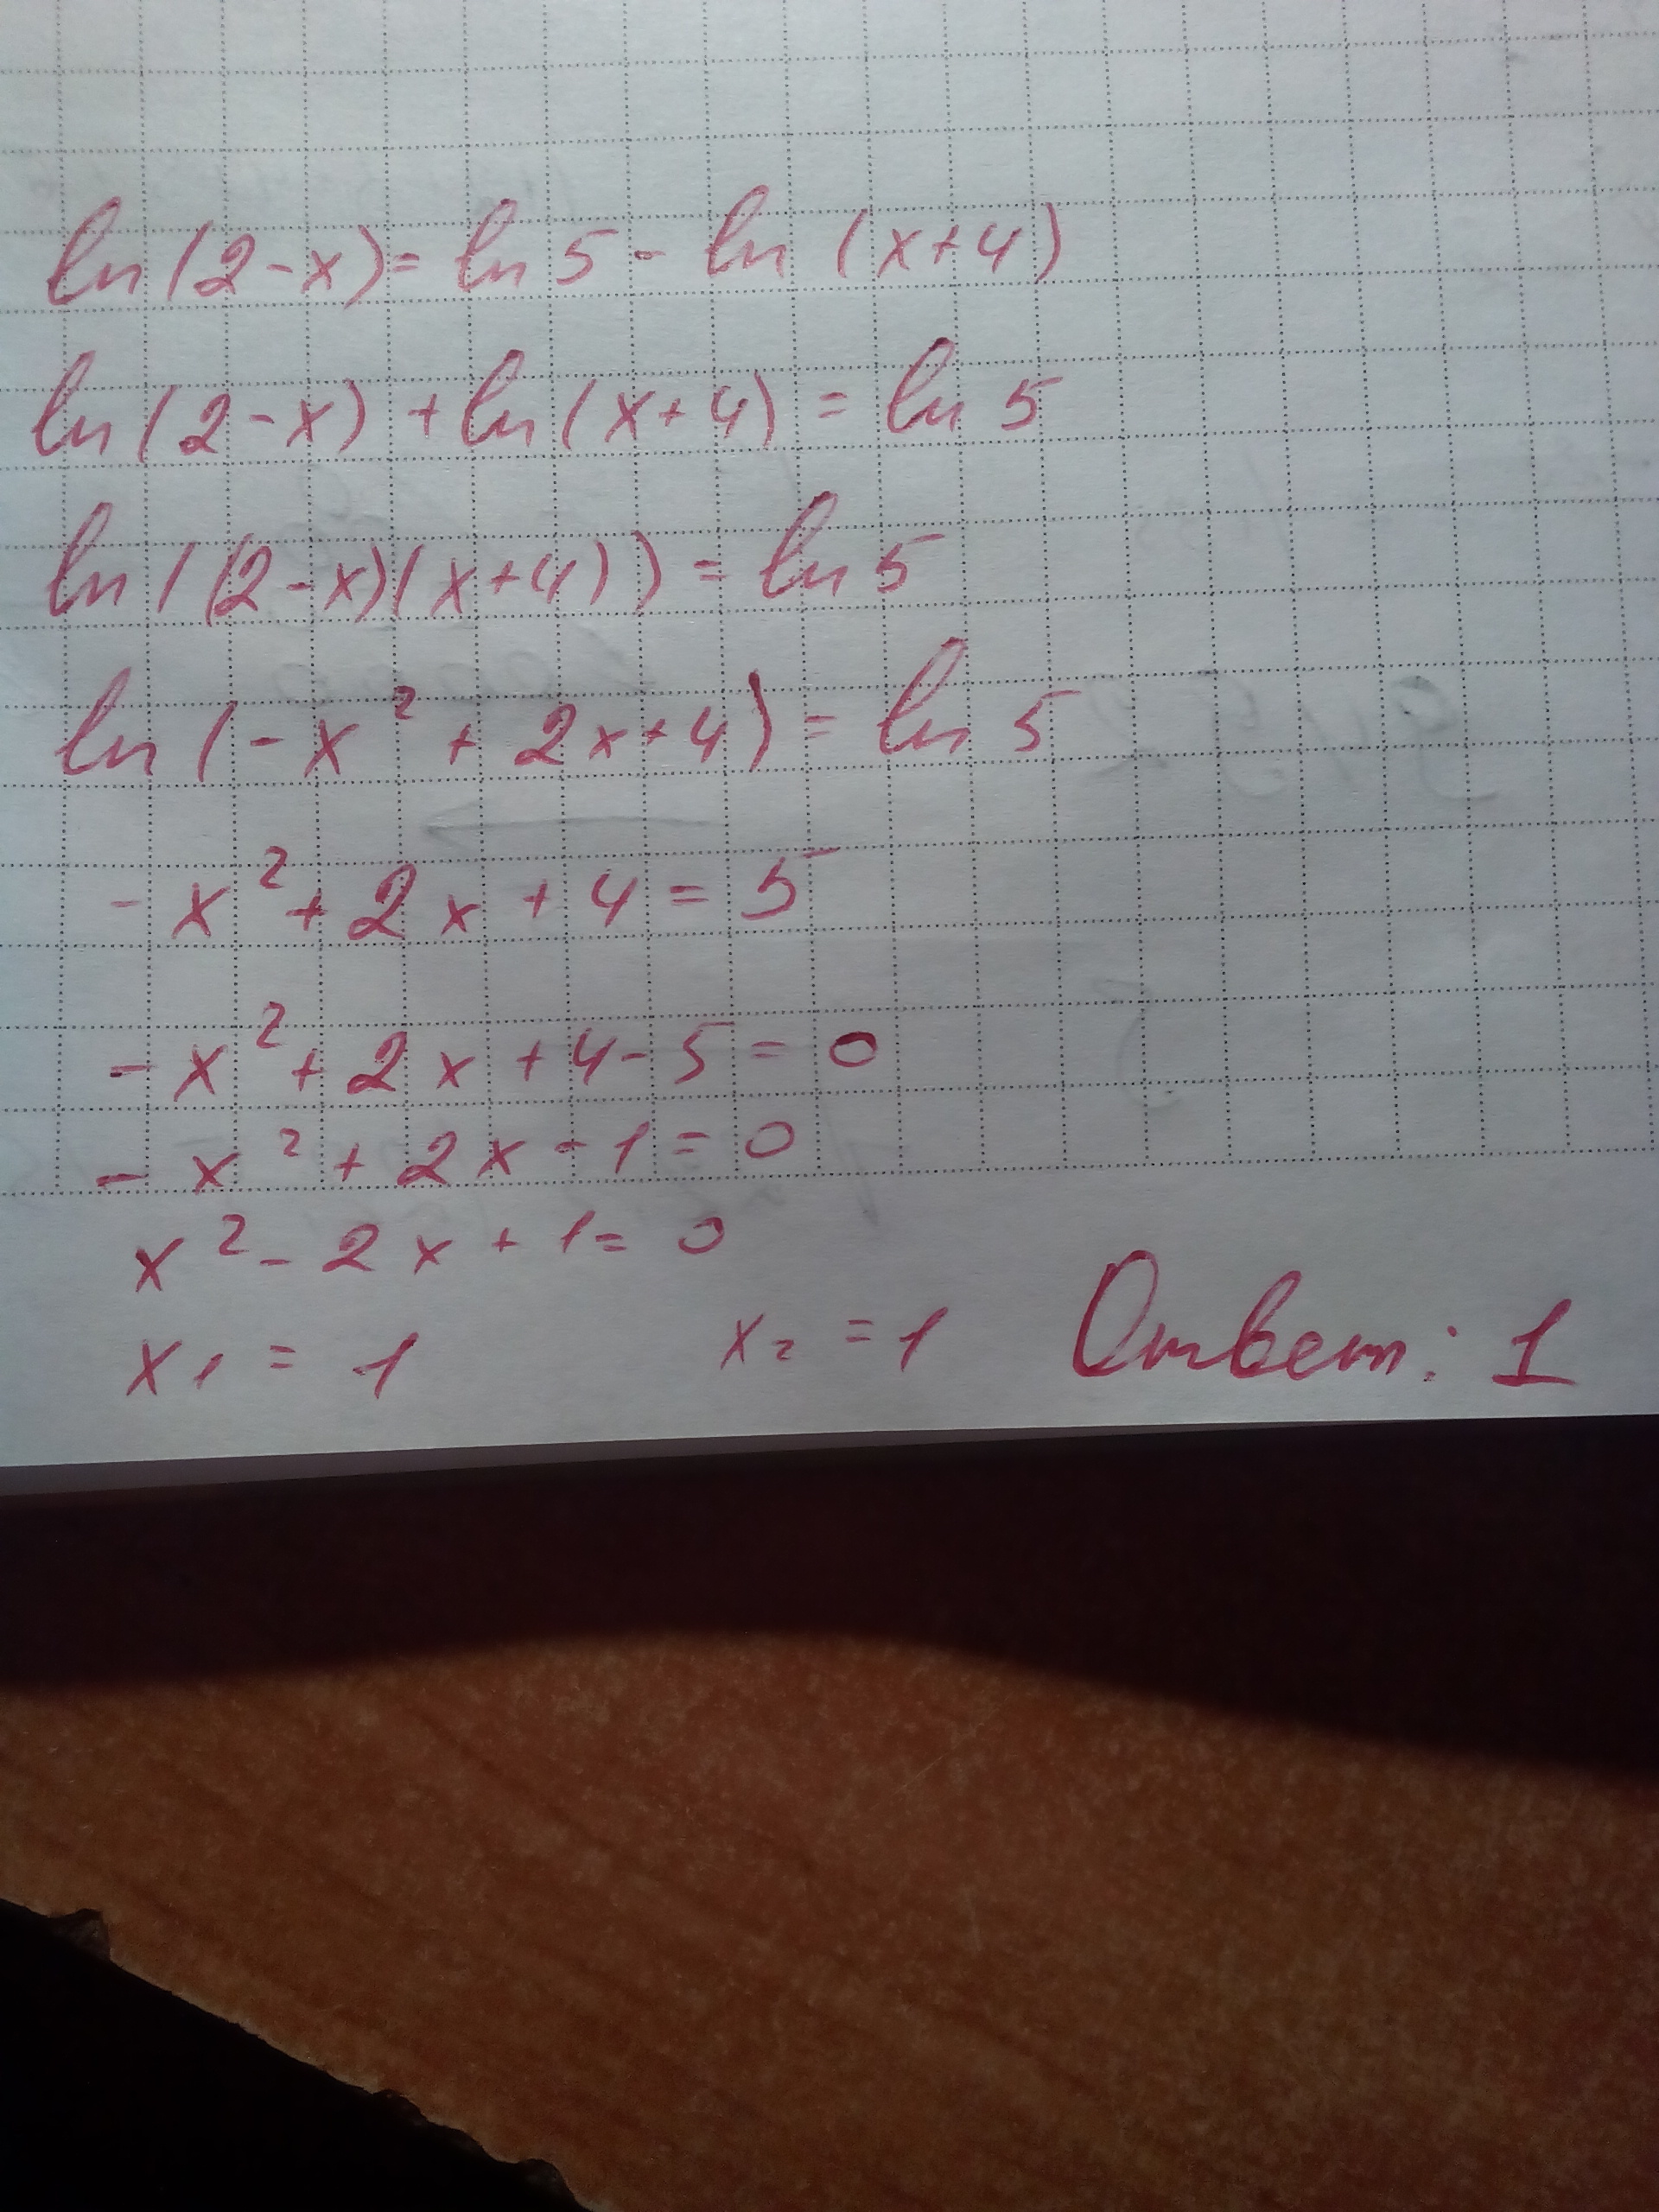 ln(2-x)= ln5- ln (x+4)
ln(2-x) +ln(x+4) = ln 5
ln((2-x)(x+4)) = ln5
ln(-x²+2x+4) = ln 5
-x²+2x+4=5
-x²+2x+4-5=0
-x²+2x-1=0
x²-2x+1=0
x₁ = 1 x₂ =1 Ответ: 1